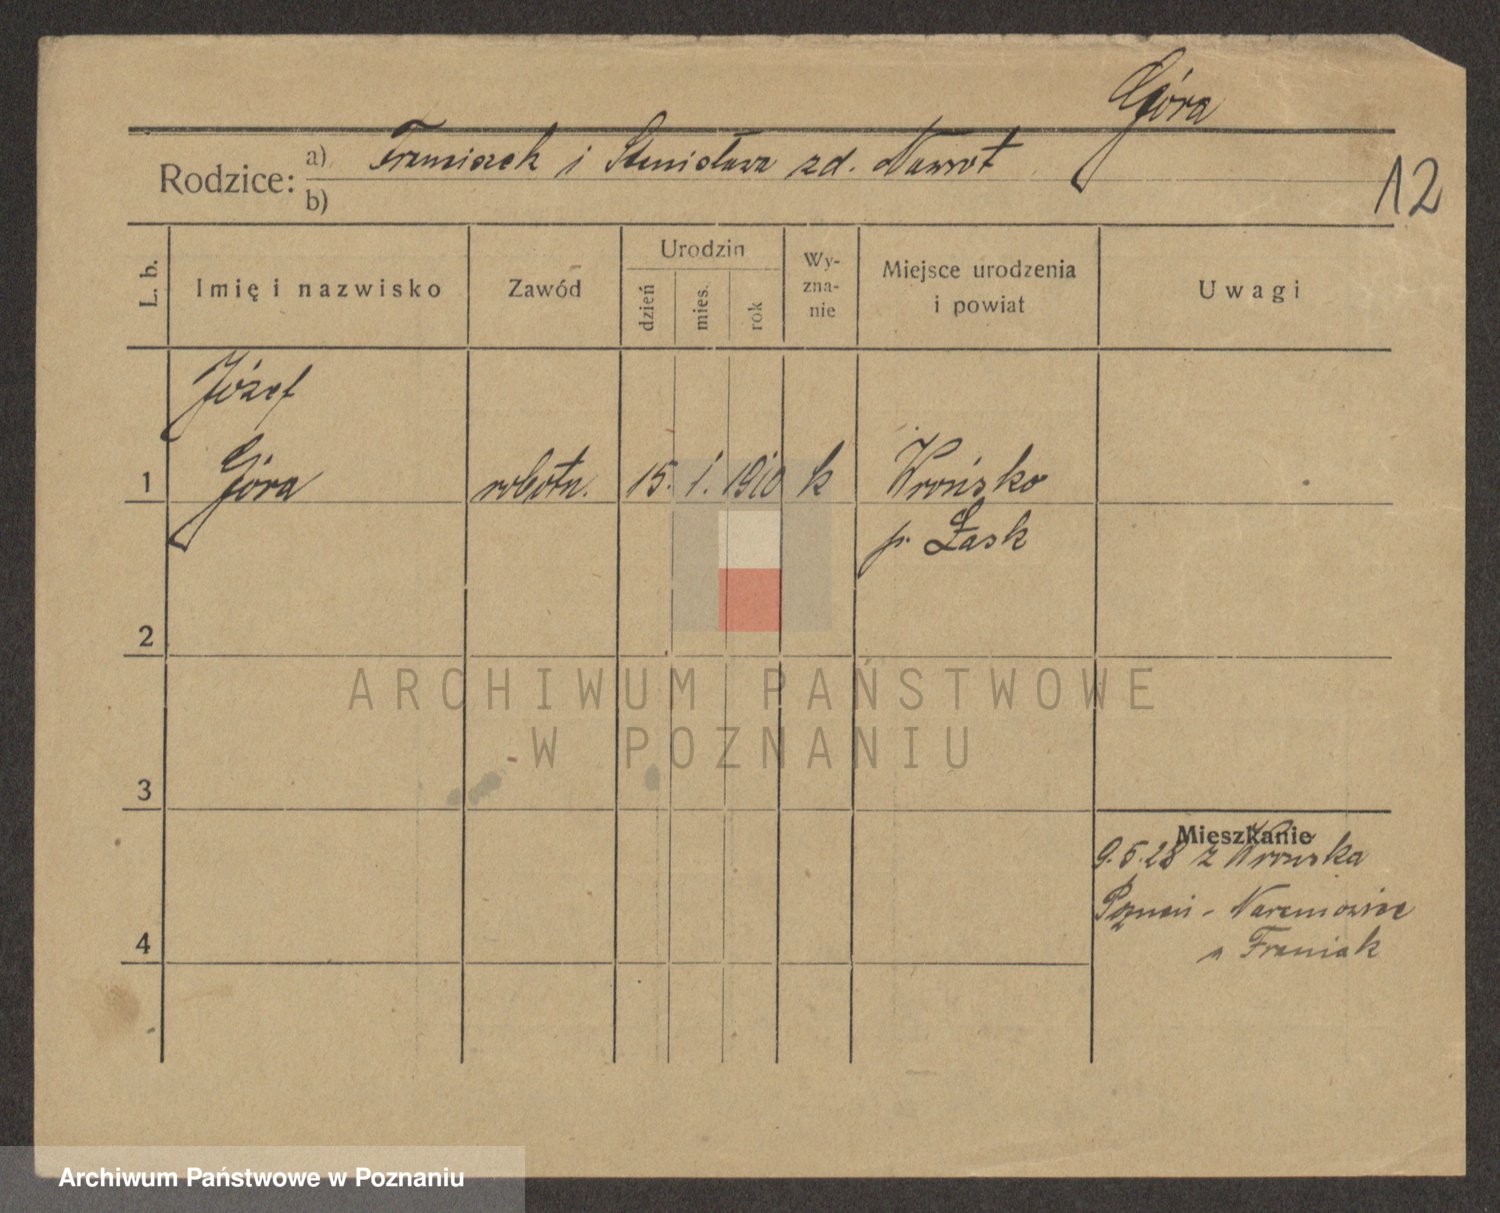 Góra
Rodzice: a) Franciszek i Stanisława zd. Nawrot
b)
12
L. b.
Imię i nazwisko
Zawód
Urodzin
dzień
mies.
rok
Wy-
zna-
nie
Miejsce urodzenia
i powiat
Uwagi
Józef
1 Góra robotn. 15. 1. 1910 k Wrońsko
p. Łask
2
ARCHIWUM PAŃSTWOWE
W POZNANIU
3
Mieszkanie
9.5.28 z Wrońska
Poznań - Naramowice
Franiak
4
Archiwum Państwowe w Poznaniu